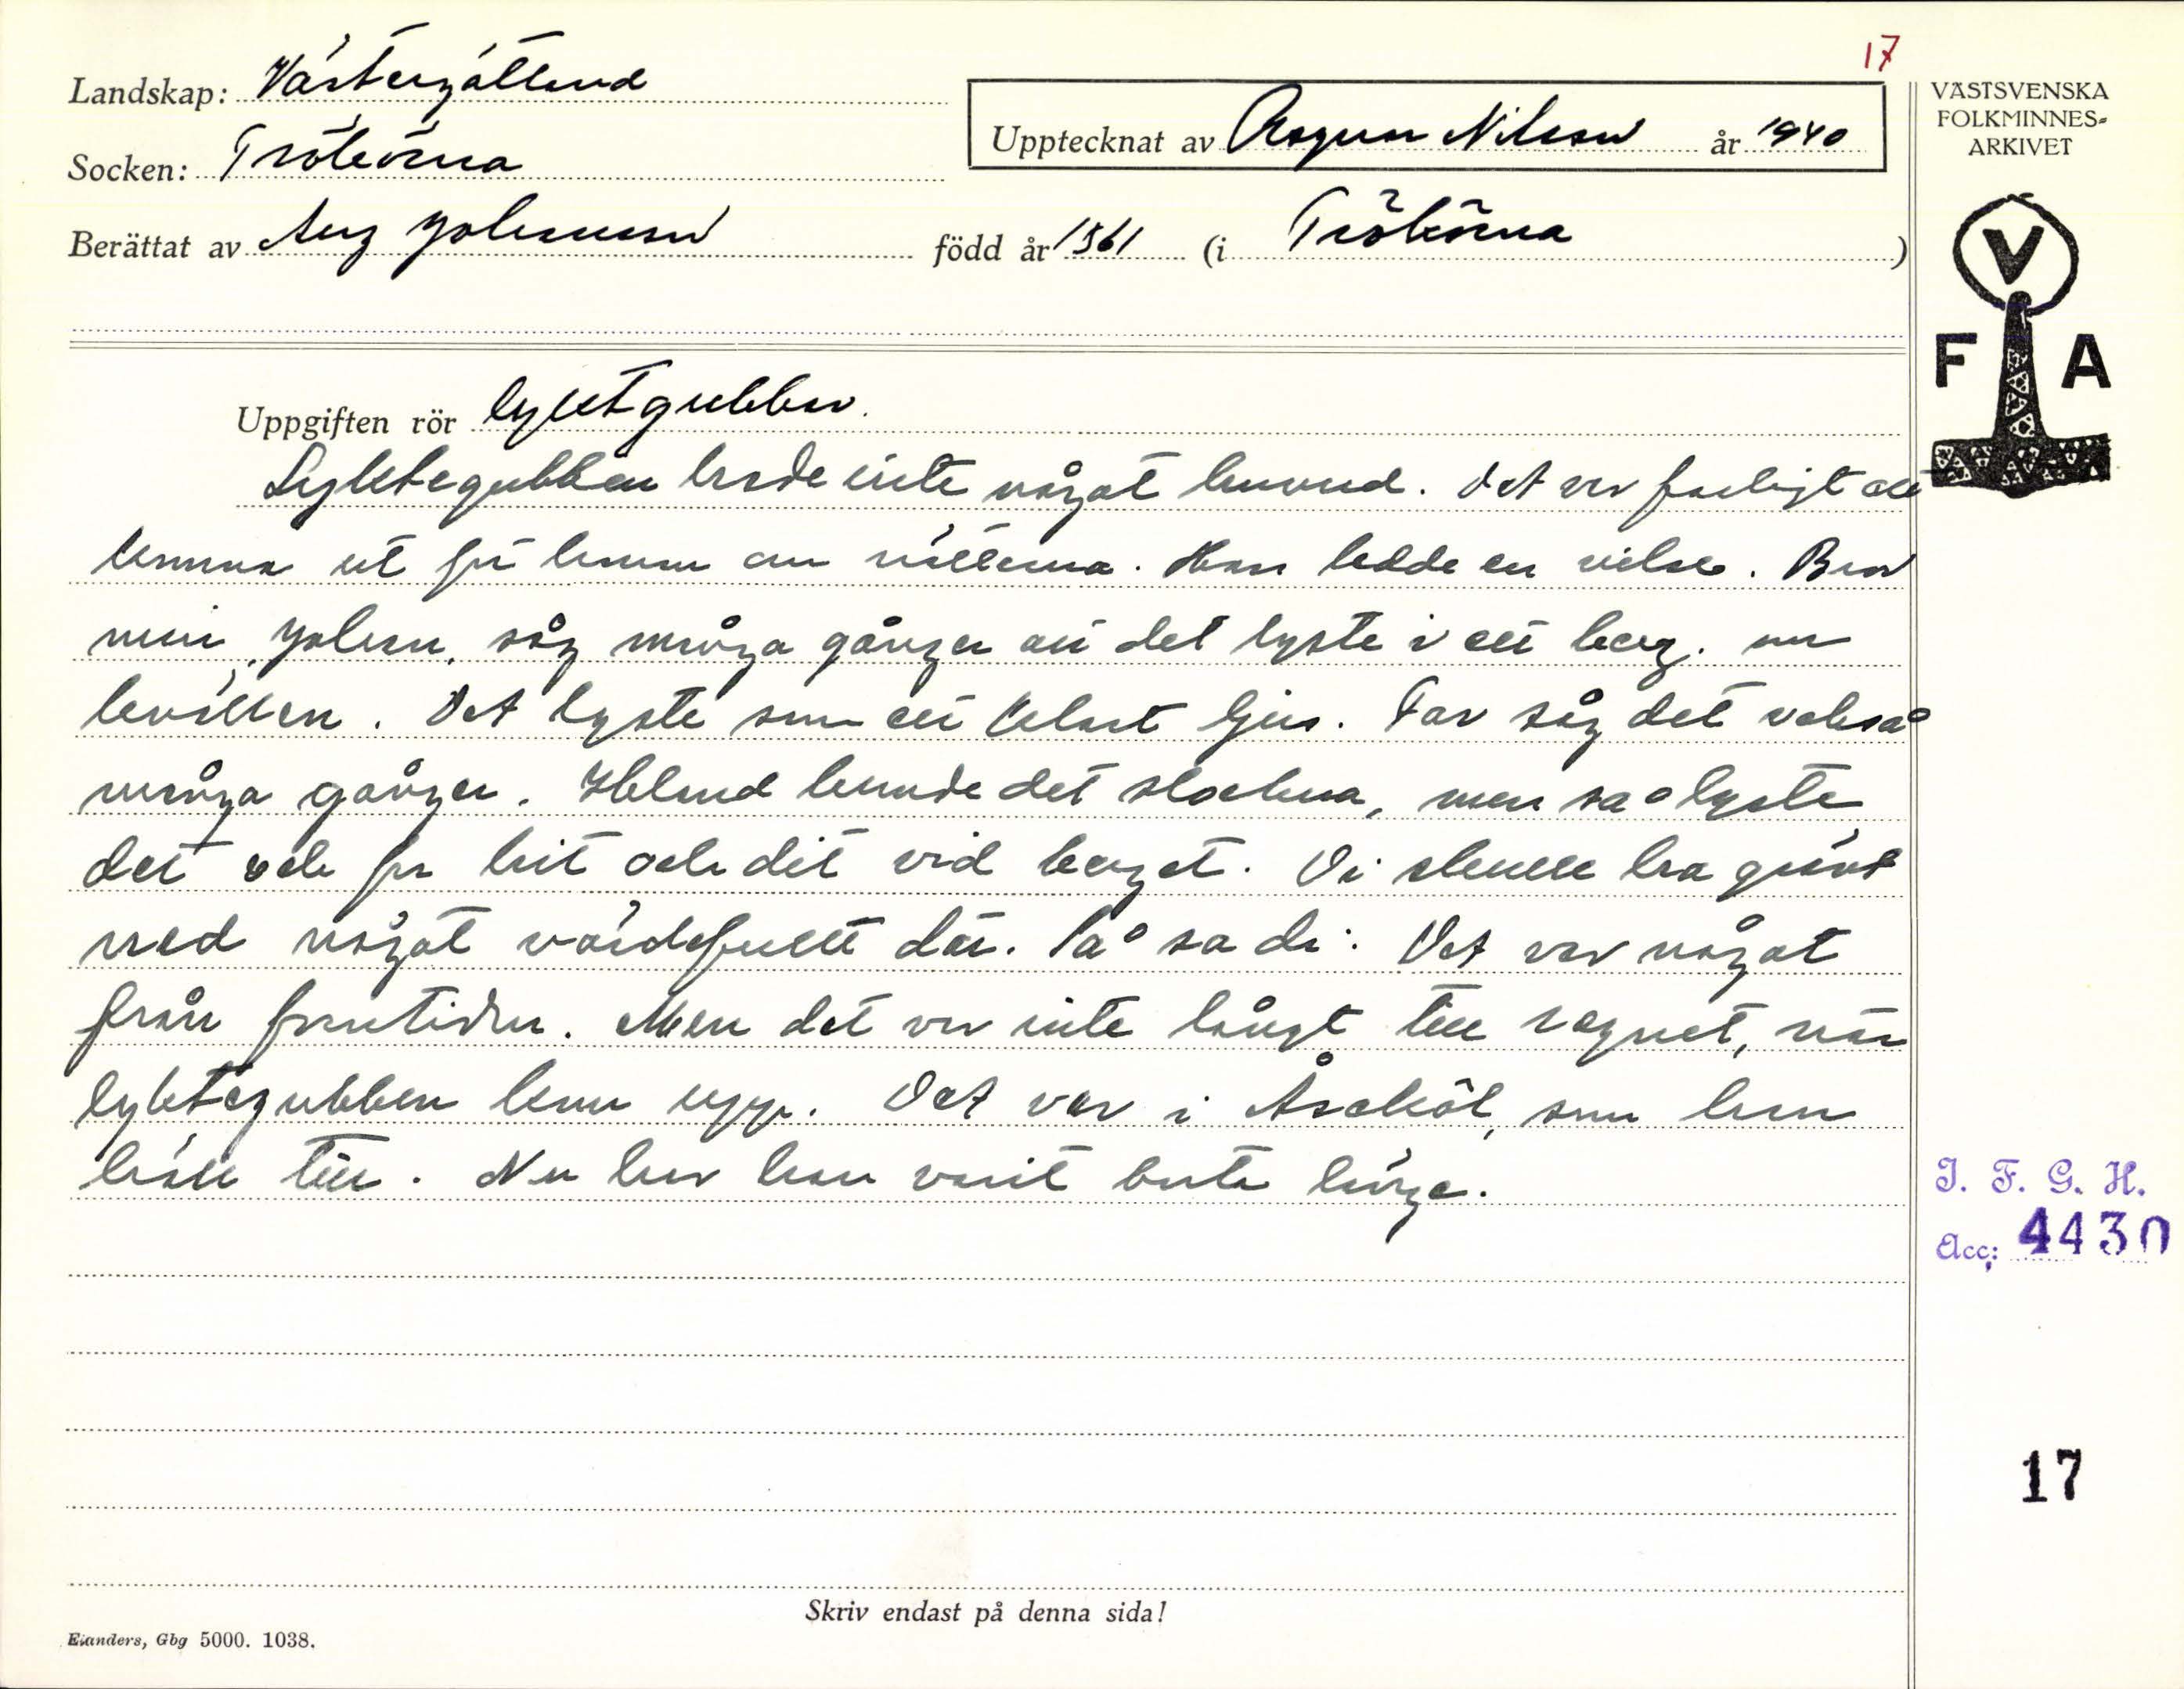 17
Landskap: Västergötland
Upptecknat av Ragnar Nilsson år 1940
Socken: Trökörna
Berättat av Aug Johansson född år 1861 (i Trökörna)
VÄSTSVENSKA
FOLKMINNES-
ARKIVET
V
F A
Uppgiften rör lyktgubbar.
Lyktegubben hade inte något huvud. Det var farligt att
komma ut för honom om nätterna. Han ledde en vilse. Bror
min, Johan, såg många gånger att det lyste i ett berg. om
kvällen. Det lyste som ett klart ljus. Far såg det också
många gånger. Ibland kunde det slockna, men sa° lyste
det och for hit och dit vid berget. Di skulle ha grävt
ned något värdefullt där. Sa° sa di. Det var något
från forntiden. Men det var inte långt till regnet, när
lyktegubben kom upp. Det var i Åsaköl, som han
höll till. Nu har han varit borta länge.
I. F. G. H.
Acc: 4430
17
Skriv endast på denna sida!
Elanders, Gbg 5000. 1038.